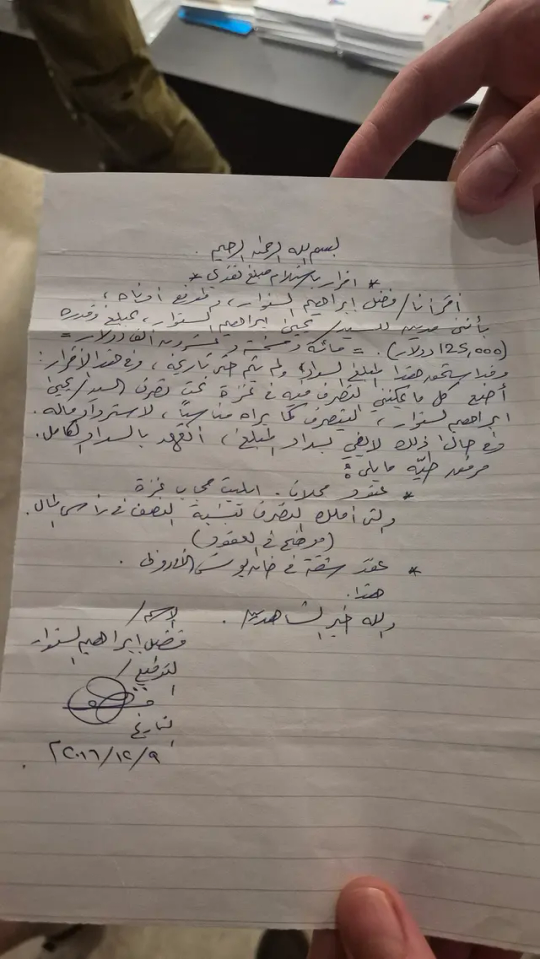 بسم الله الرحمن الرحيم.
* اقرار باستلام مبلغ نقدي *
أقر أنا/ فضل ابراهيم السنوار، والموقع أدناه،
بأنني مدين للسيد/ يحيى ابراهيم السنوار، بمبلغ وقدره
(125,000 دولار). = مائة وخمسة وعشرون ألف دولار =
هذا المبلغ السداد ولم يتم حتى تاريخه، وفي هذا الاقرار:
أضع كل ما يمكنني التصرف فيه في غزة تحت تصرف السيد/ يحيى
ابراهيم السنوار، للتصرف كما يراه مناسباً، لاسترداد ماله.
وفي حال ذلك لا يفي بسداد المبلغ، أتعهد بالسداد الكامل.
مرفق طيّه ما يلي:
* عقود محلات. غزة
والتي أملك التصرف بنسبة النصف في رأس المال.
(موضح في العقود)
* عقد شقة في خانيونس
هذا.
والله خير الشاهدين.
الاسم/
فضل ابراهيم السنوار
التوقيع/
التاريخ
٢٠١٦/١٢/٩م